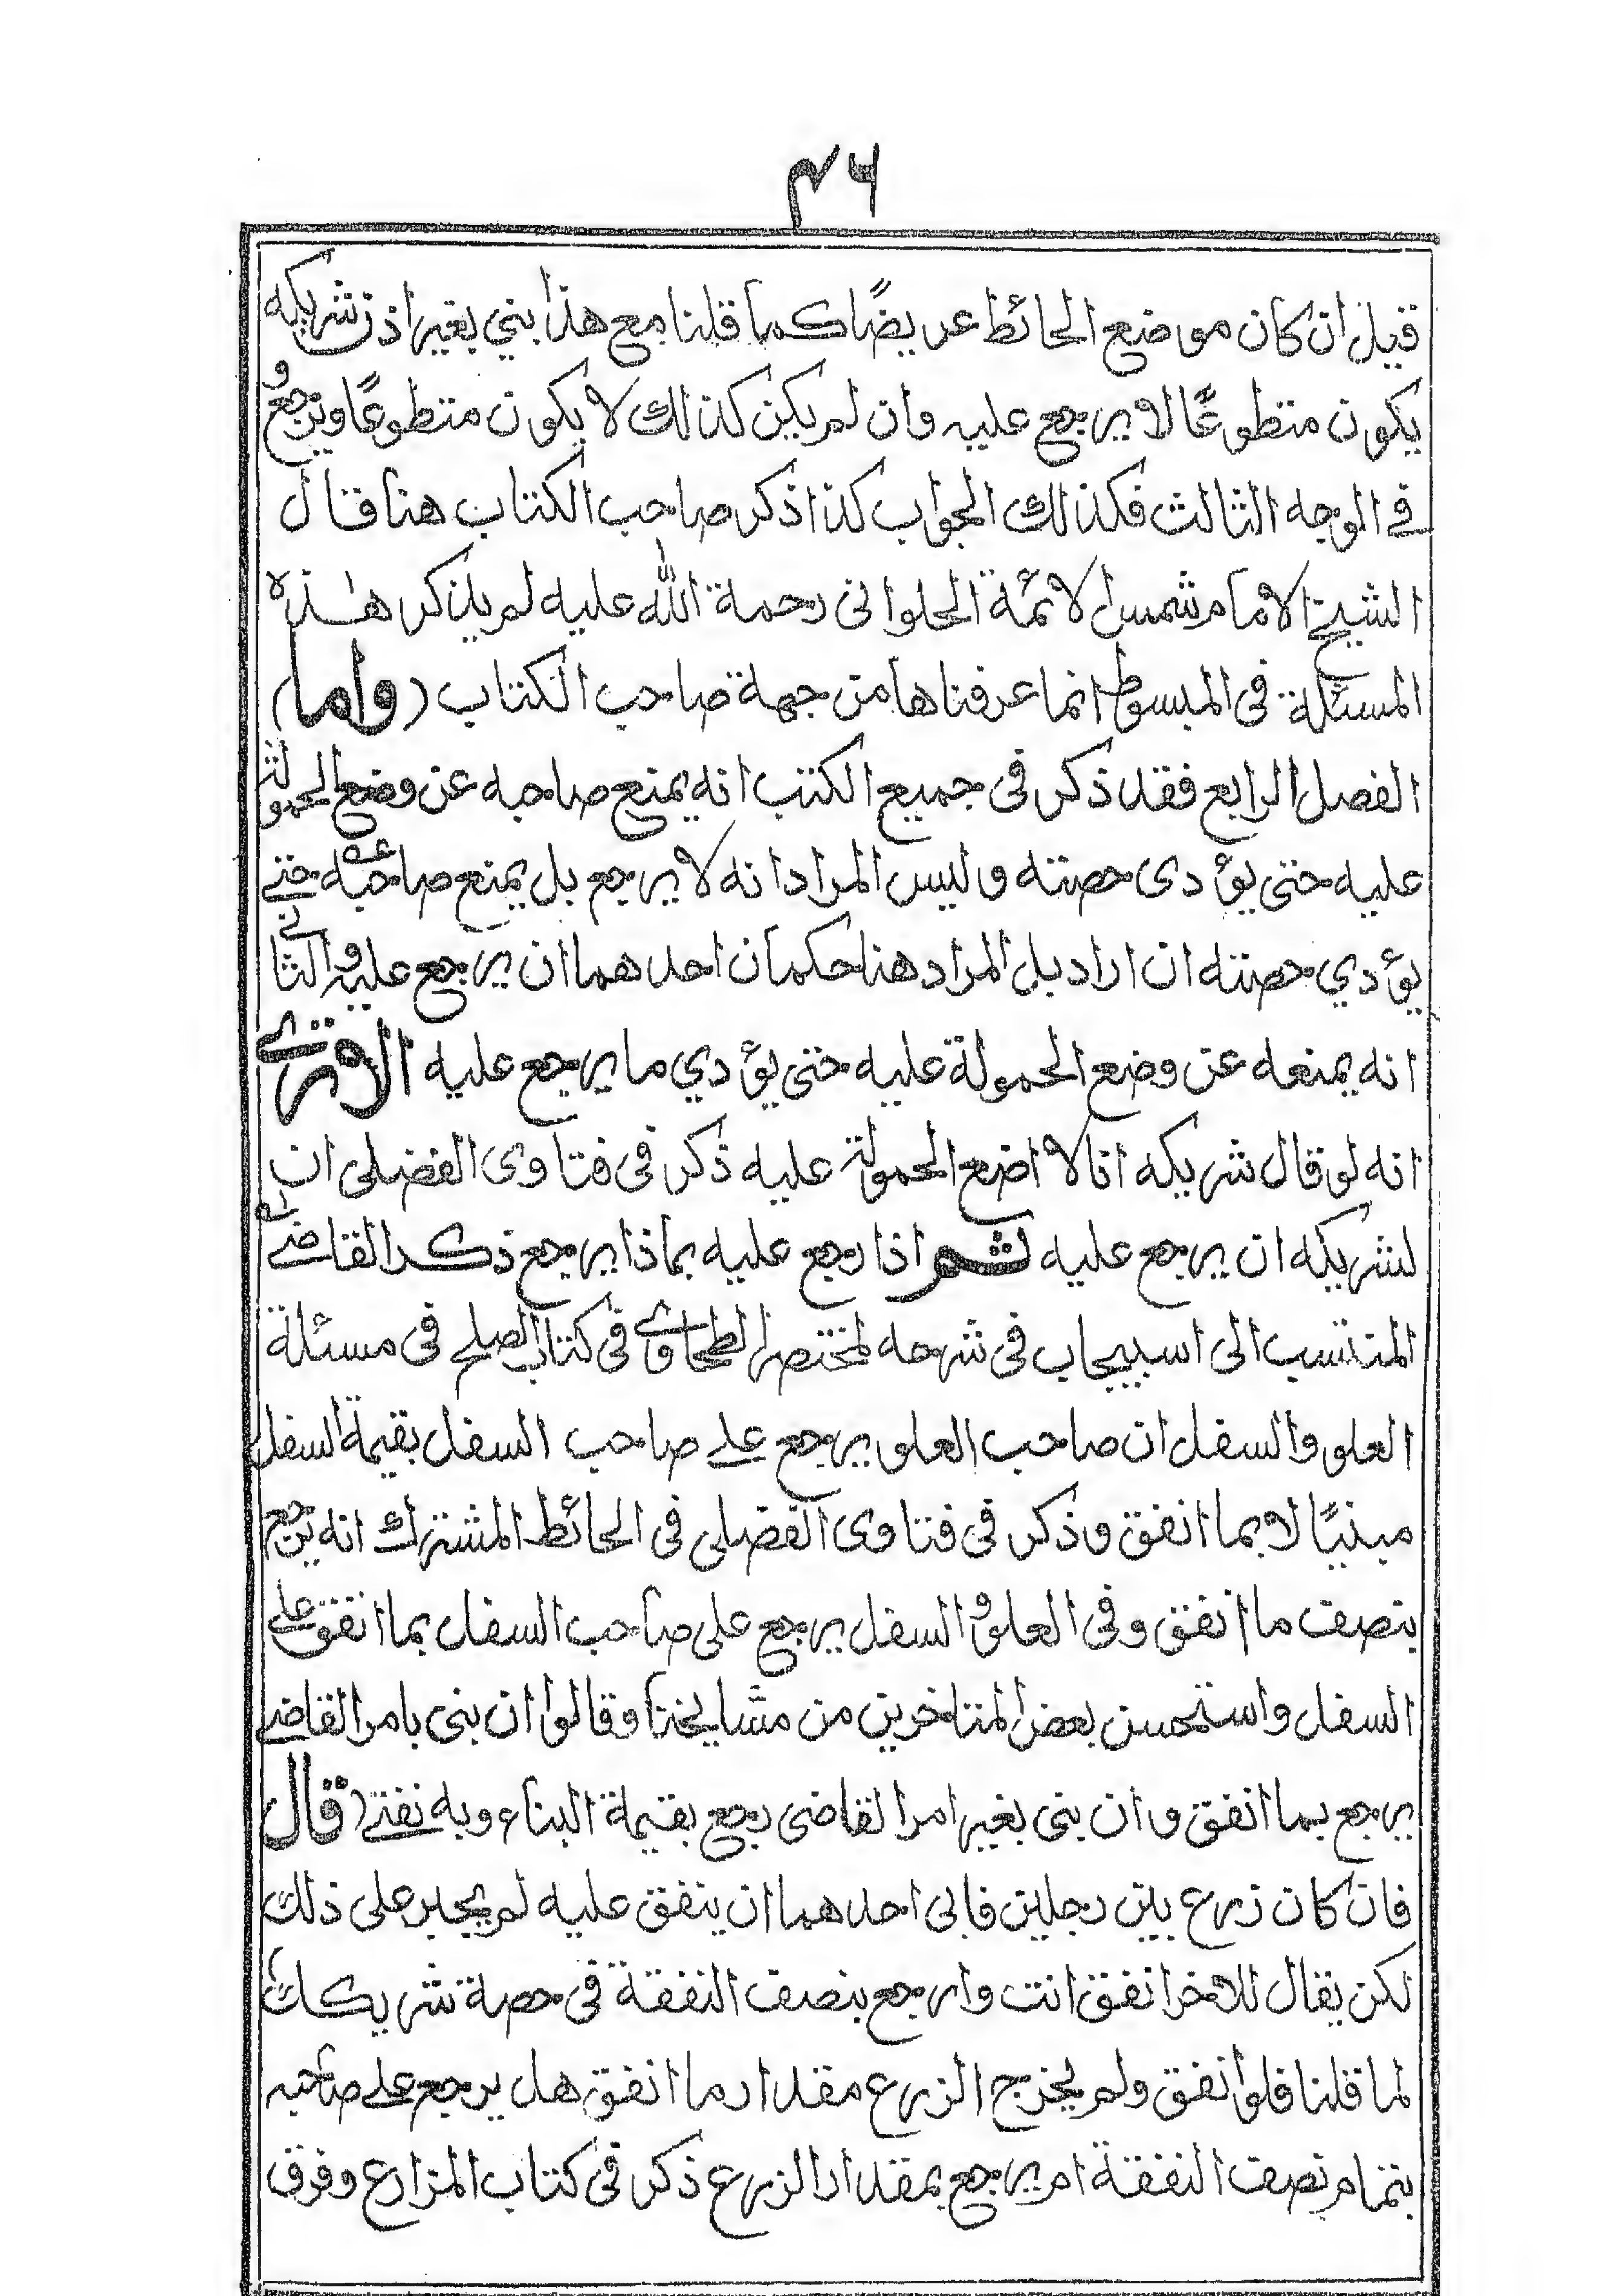 ٤٦
قيل ان كان موضع الحائط عريضًا كما قلنا مع هذا بني بغير اذن شريكه
يكون متطوعًا لا يرجع عليه وان لم يكن كذالك لا يكون متطوعًا ويرجع و
في الوجه الثالث فكذالك الجواب كذا ذكر صاحب الكتاب هنا قال
الشيخ الامام شمس الائمة الحلوانى رحمة الله عليه لم يذكر هذه
المسئلة فى المبسوط انما عرفناها من جهة صاحب الكتاب (واما)
الفصل الرابع فقد ذكر فى جميع الكتب انه يمنع صاحبه عن وضع الحمولة
عليه حتى يؤدى حصته وليس المراد انه لا يرجع بل يمنع صاحبه حتى
يؤدي حصته ان اراد بل المراد هنا حكمان احدهما ان يرجع عليه والثانى
انه يمنعه عن وضع الحمولة عليه حتى يؤدي ما يرجع عليه الا ترى
انه لو قال شريكه انا لا اضع الحمولة عليه ذكر فى فتاوى الفضلى ان
لشريكه ان يرجع عليه ثم اذا رجع عليه بماذا يرجع ذكر القاضى
المنتسب الى اسبيجاب فى شرحه لمختصر الطحاوى فى كتاب الصلح فى مسئلة
العلو والسفل ان صاحب العلو يرجع على صاحب السفل بقيمة السفل
مبنيًا لا بما انفق وذكر فى فتاوى الفضلى فى الحائط المشترك انه يرجع
بنصف ما انفق وفى العلو والسفل يرجع على صاحب السفل بما انفق على
السفل واستحسن بعض المتاخرين من مشايخنا وقالوا ان بنى بامر القاضى
يرجع بما انفق وان بنى بغير امر القاضى رجع بقيمة البناء وبه نفتى (قال
فان كان زرع بين رجلين فابى احدهما ان ينفق عليه لم يجبر على ذلك
لكن يقال للاخر انفق انت وارجع بنصف النفقة فى حصة شريكك
لما قلنا فلو انفق ولم يخرج الزرع مقدار ما انفق هل يرجع على صاحبه
بتمام نصف النفقة ام يرجع بمقدار الزرع ذكر فى كتاب المزارع وفرق